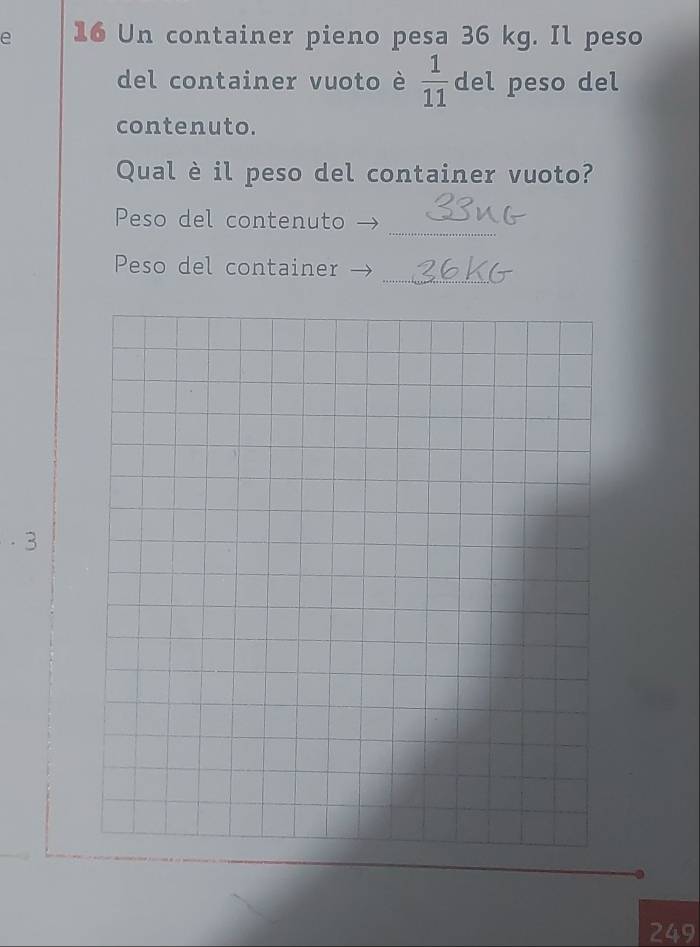 e
16 Un container pieno pesa 36 kg. Il peso
del container vuoto è 1/11 del peso del
contenuto.
Qual è il peso del container vuoto?
Peso del contenuto → 33KG
Peso del container → 36KG
. 3
249